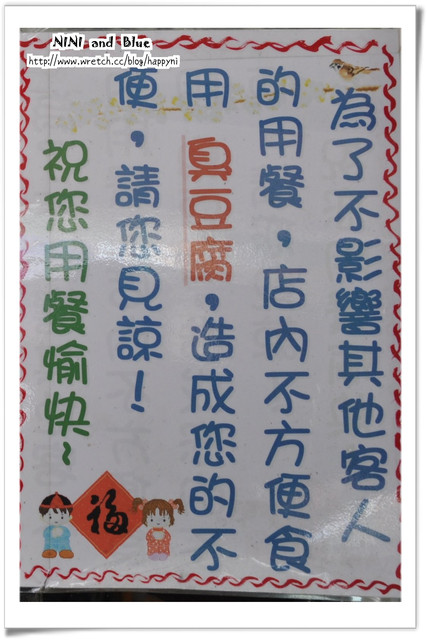 NiNi and Blue
http://www.wretch.cc/blog/happyni
為了不影響其他客人
的用餐，店內不方便食
用臭豆腐，造成您的不
便，請您見諒！
祝您用餐愉快~
福